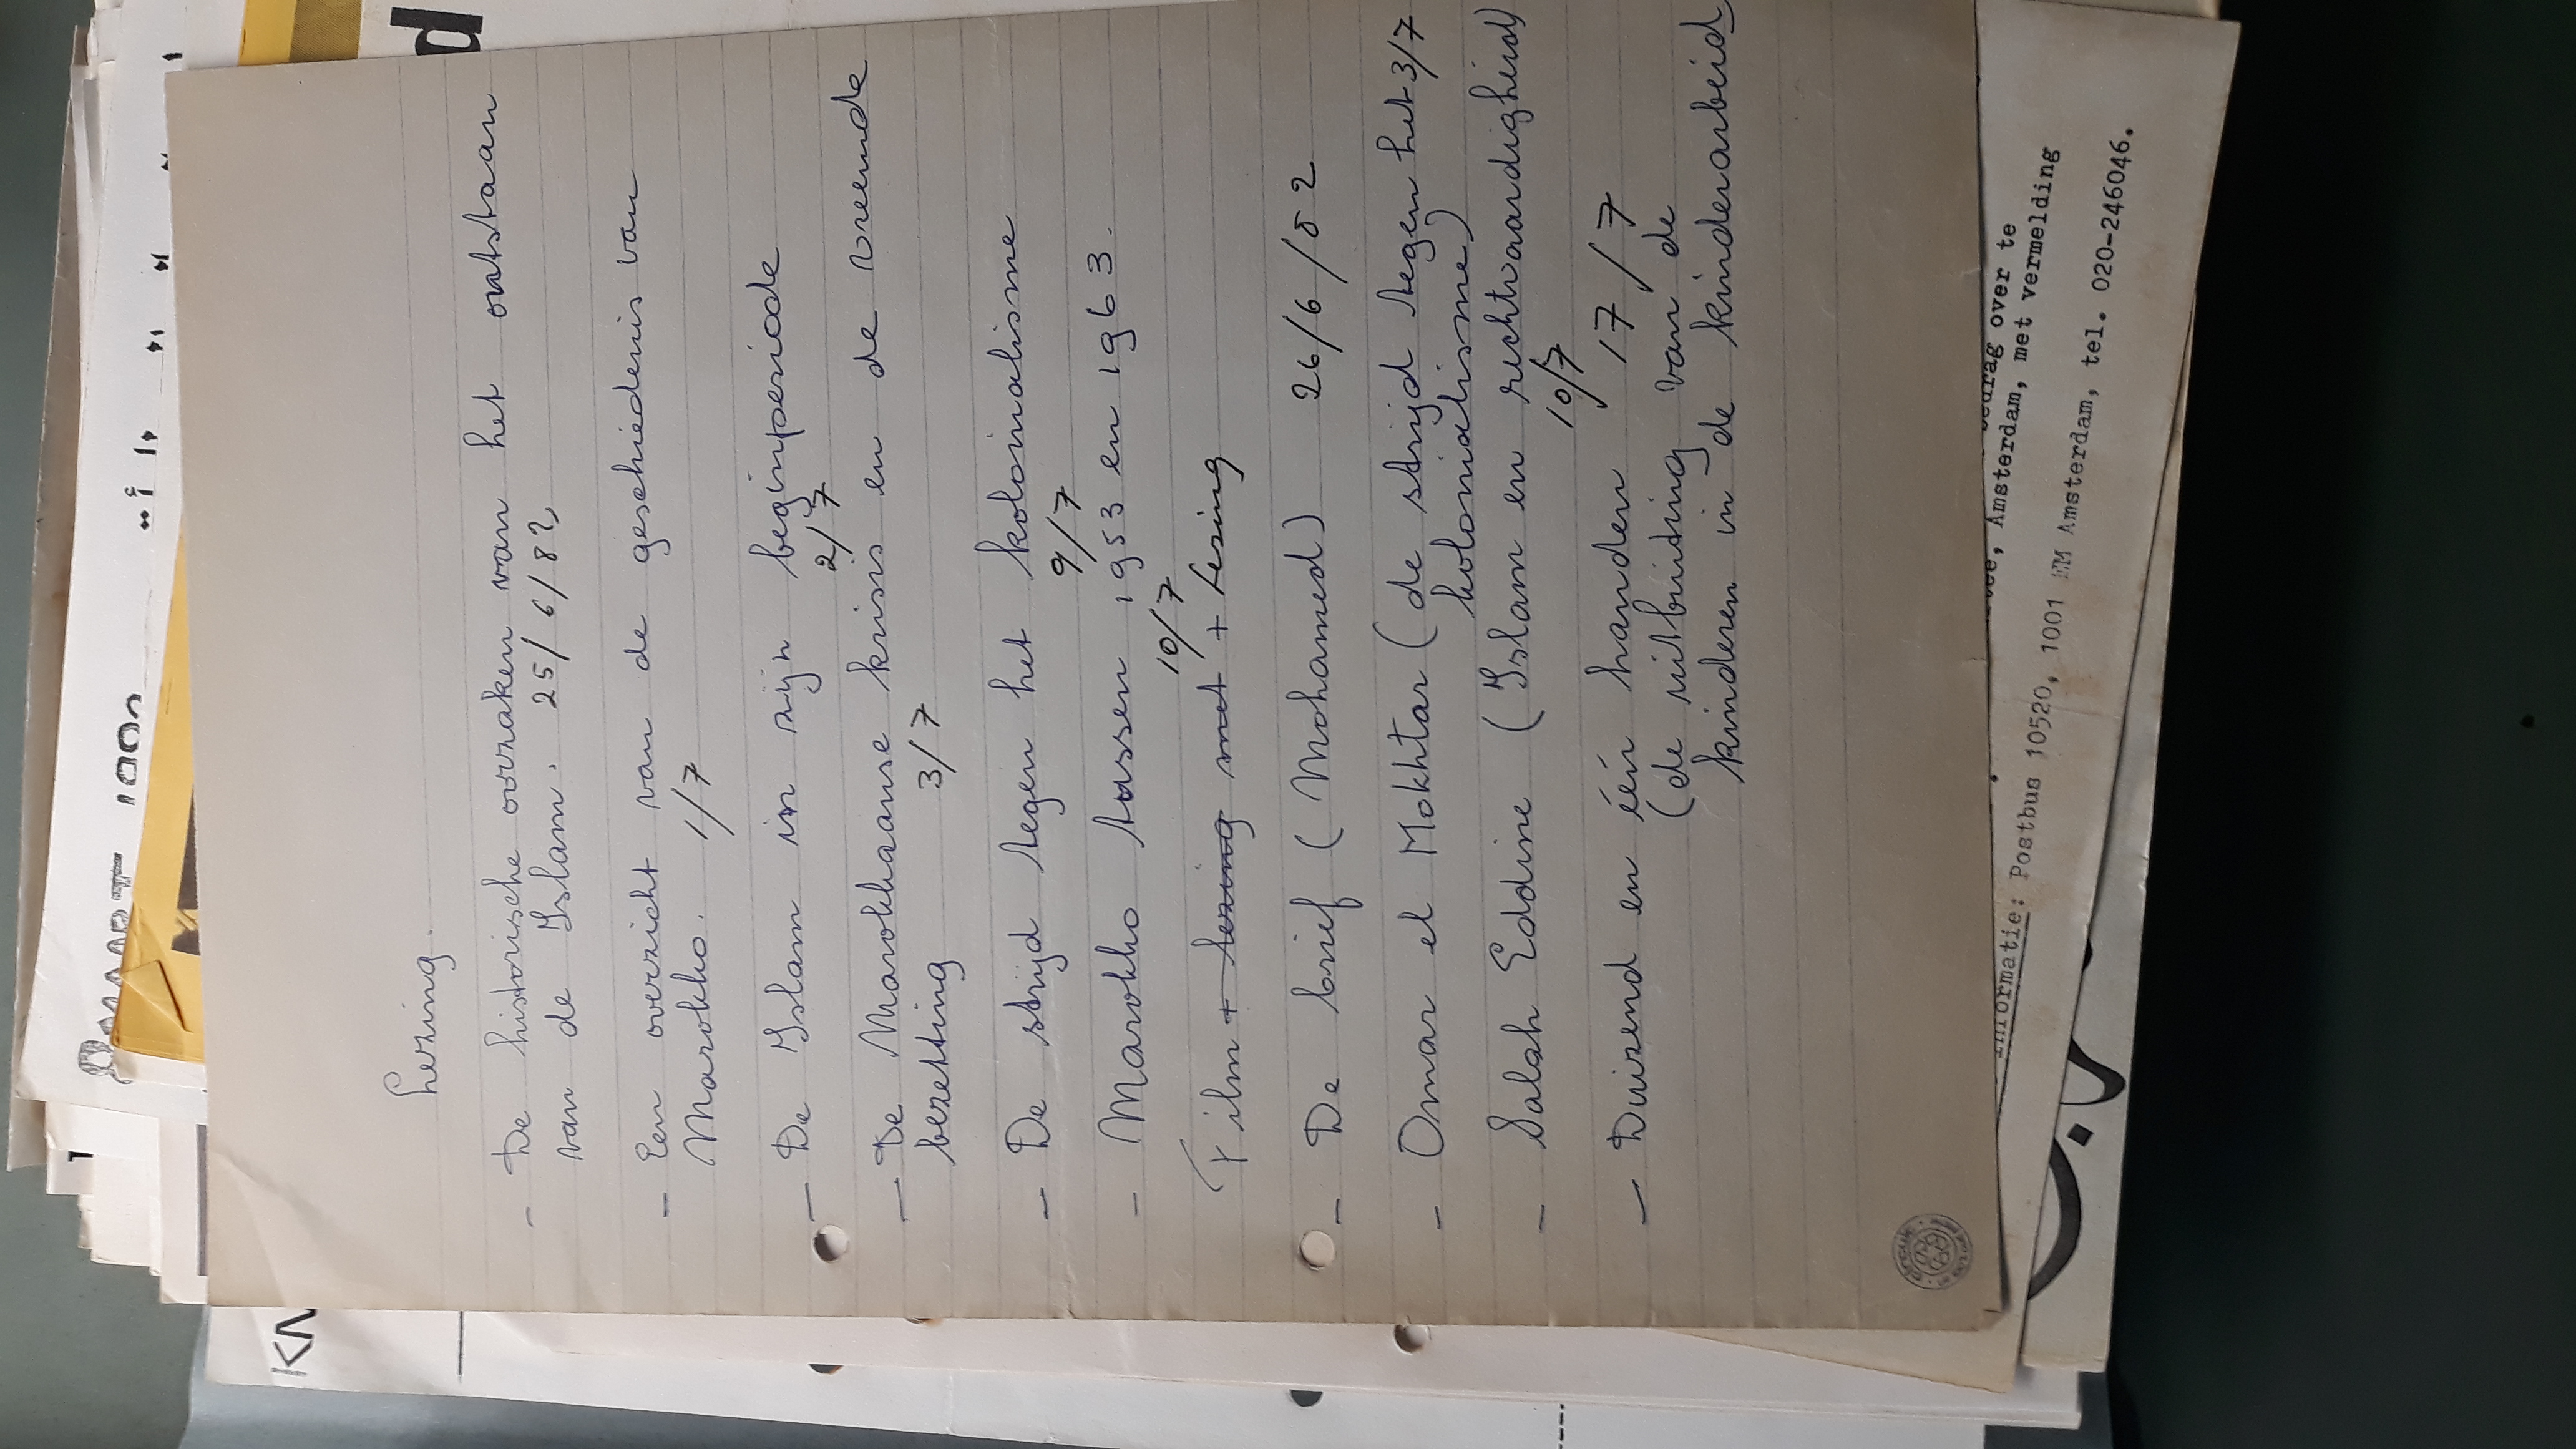 8 MAART 1992
KN
d
Lezing.
- De historische oorzaken van het ontstaan
van de Islam. 25/6/82
- Een overzicht van de geschiedenis van
Marokko. 1/7
- De Islam in zijn beginperiode
2/7
- De Marokkaanse krisis en de vreemde
bezetting 3/7
- De strijd tegen het kolonialisme
9/7
- Marokko tussen 1953 en 1963.
10/7
Film + lezing met + Lezing
- De brief (Mohamed) 26/6/82
- Omar el Mokhtar (de strijd tegen het 3/7
kolonialisme)
- Salah Eddine (Islam en rechtvaardigheid)
10/7
- Duizend en één handen 17/7
(de uitbuiting van de
kinderen in de kinderarbeid
circuit
bedrag over te
Amsterdam, met vermelding
informatie: Postbus 10520, 1001 EM Amsterdam, tel. 020-246046.